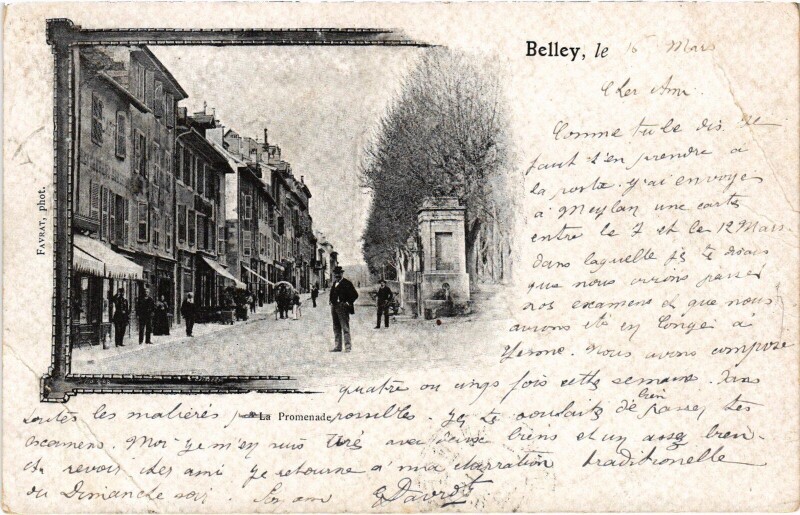 Belley, le 16 Mars
Cher Ami.
Comme tu le dis. Il
faut s'en prendre à
la poste. J'ai envoyé
à Meylan une carte
entre le 7 et le 12 Mars.
dans laquelle je te disais
que nous avions passé
nos examens et que nous
avions été en Congé à
Nous avons composé
quatre ou cinq fois cette semaine. Dans
toutes les matières possibles. Je te souhaite de bien passer tes
examens. Moi je m'en suis tiré avec bien et un assez bien.
Au revoir cher ami je retourne à ma narration traditionelle
du Dimanche soir. Ton ami
FAVRAT, phot.
La Promenade